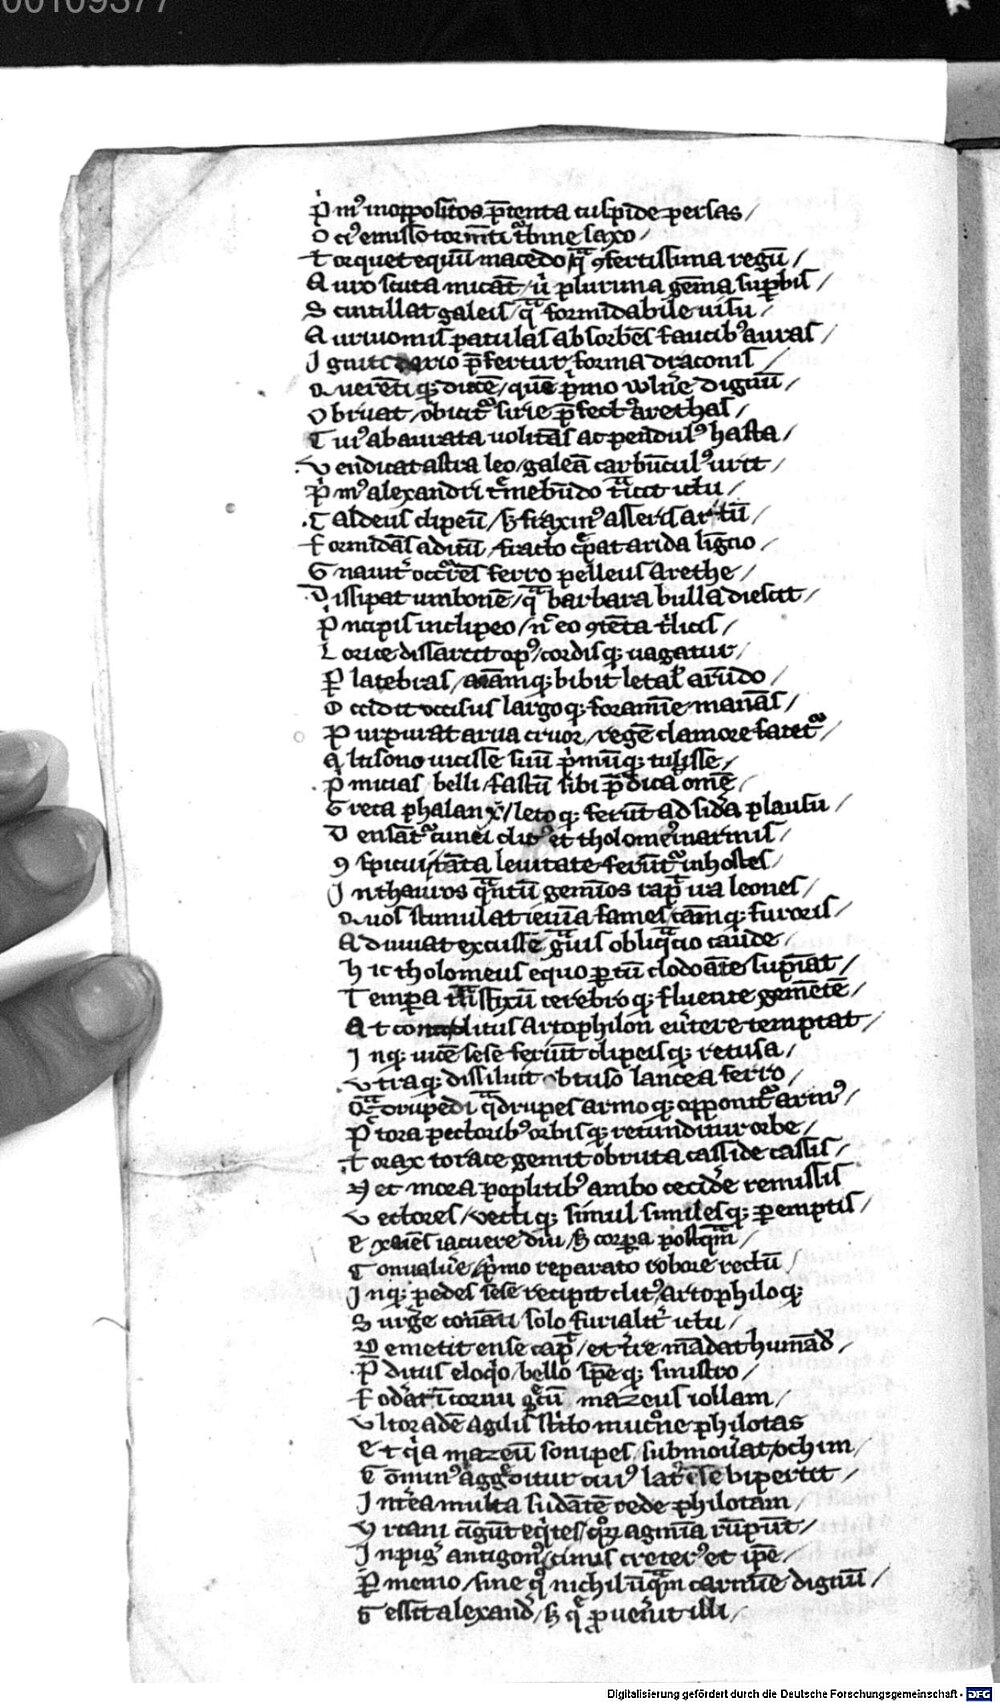 00109377
p̍mꝰ inoppoſitos p̄tenta cuſpide perſas/
O ciꝰ emiſſo tormēti t̾bine ſaxo/
T orquet equū macedo/q̄ ꝯfertiſſima regū/
A uro ſcuta micāt/ u̍ plurima gēma ſuꝑbis/
S cintillat galeis/ q̄ formidabile uiſu/
A uriuomis patulas abſorbēs faucibꝰ auras/
I gniti dario p̄fertur forma draconis/
Q uerēti qꝫ ducē/ quē p̍mo uulne̾ dignū/
O bruat/ obicit᷑ ſirie p̄fectꝰ arethas/
C uiꝰ ab aurata uolitās ac pendulꝰ haſta/
V endicat aſtra leo/ galeā carbūculꝰ urit/
p̍mꝰ alexandri t̾mebūdo fr̄cit ictu/
C aldeus clipeū/ ſꝫ fraxinꝰ aſſeris artū/
F ormidās aditū/ fracto cꝛ̄pat arida ligno/
G nauit̾ occr̄ēs ferro pelleus arethe/
D iſſipat umbonē/ q̄ barbara bulla dieſcit/
p̍ncipis in clipeo/ n̄ eo ꝯtēta t̍licis/
L orice diſſarcit opꝰ/ cordiſqꝫ uagatur/
Ꝑ latebras/ aīamqꝫ bibit letal̾ arūdo/
O ccidit occiſus largoqꝫ foramīe manās/
P urpurat arua cruor/ regē clamore fatet᷑/
A ltiſono uiciſſe ſuū p̍mūqꝫ tuliſſe/
p̍micias belli/ fauſtū ſibi p̄dicā̄ omē/
G reca phalanx/ letoqꝫ ferūt ad ſide̾a plauſū/
D enſāt᷑ cunei clitꝰ et tholomeꝰ in armis/
ꝯ ſpicui tāta leuitate ferūt᷑ in hoſtes/
I n thauros q̄ntū gemīos rapt᷑ ua leones/
Q uos ſtimulat ieiūa fames tāmqꝫ furoris/
A diuuat excuſſē g̾uis obliq̄cio caude/
H ic tholomeus equo ꝑtū clodoāte ſuꝑīat/
T empora tr̄nſfixū cerebroqꝫ fluente gemētē/
A t conplitus artophilon eu̾tere temptat/
I nqꝫ uicē ſeſe feriūt clipeiſqꝫ retuſa/
V traqꝫ diſſiluit obtuſo lancea ferro/
Q̄drupedi q̄drupes armoqꝫ opponit᷑ armꝰ/
P̄ctora pectoribꝰ orbiſqꝫ retunditur orbe/
T orax torace gemit obruta caſſide caſſis/
N ec mora poplitibꝰ ambo cecide̾ remiſſis
V ectores/ uectiqꝫ ſimul ſimileſqꝫ ꝑemptis/
E xāīes iacuere diu/ ſꝫ corꝑa poſtq̄m/
C onualue̾/ p̍mo reparato robore rectū/
I nqꝫ pedes ſeſe recipit clitꝰ/ artophiloqꝫ
S urge̾ conāti ſolo furialit̾ ictu/
D emetit enſe capꝰ/ et t̾re mādat humād̄/
p̄ditus eloq̍o/ bello ſꝑeqꝫ ſiniſtro/
F odāt ī cornu g̾cū mazeus iollam/
V ltor adē agilis ſtricto mucrōe philotas
E t q̍a mazeū ſonipes/ ſubmou̾at/ ochim
E ominꝰ aggreditur cuiꝰ latꝰ ēſe bipertit/
I nt̾ea multa ſudātē cede philotam/
Y rcani cīgūt eq̍tes/ q̄ꝝ agmīa rūpūt/
I npig̾ antigonꝰ/ cinus cretecꝰ et ip̄e/
Ꝑ menio/ ſine q̍ nichil ūq̄m carmīe dignū/
G eſſit alexand̾/ ſꝫ q̄ ꝓuen̾ut illi/
Digitalisierung gefördert durch die Deutsche Forschungsgemeinschaft - DFG